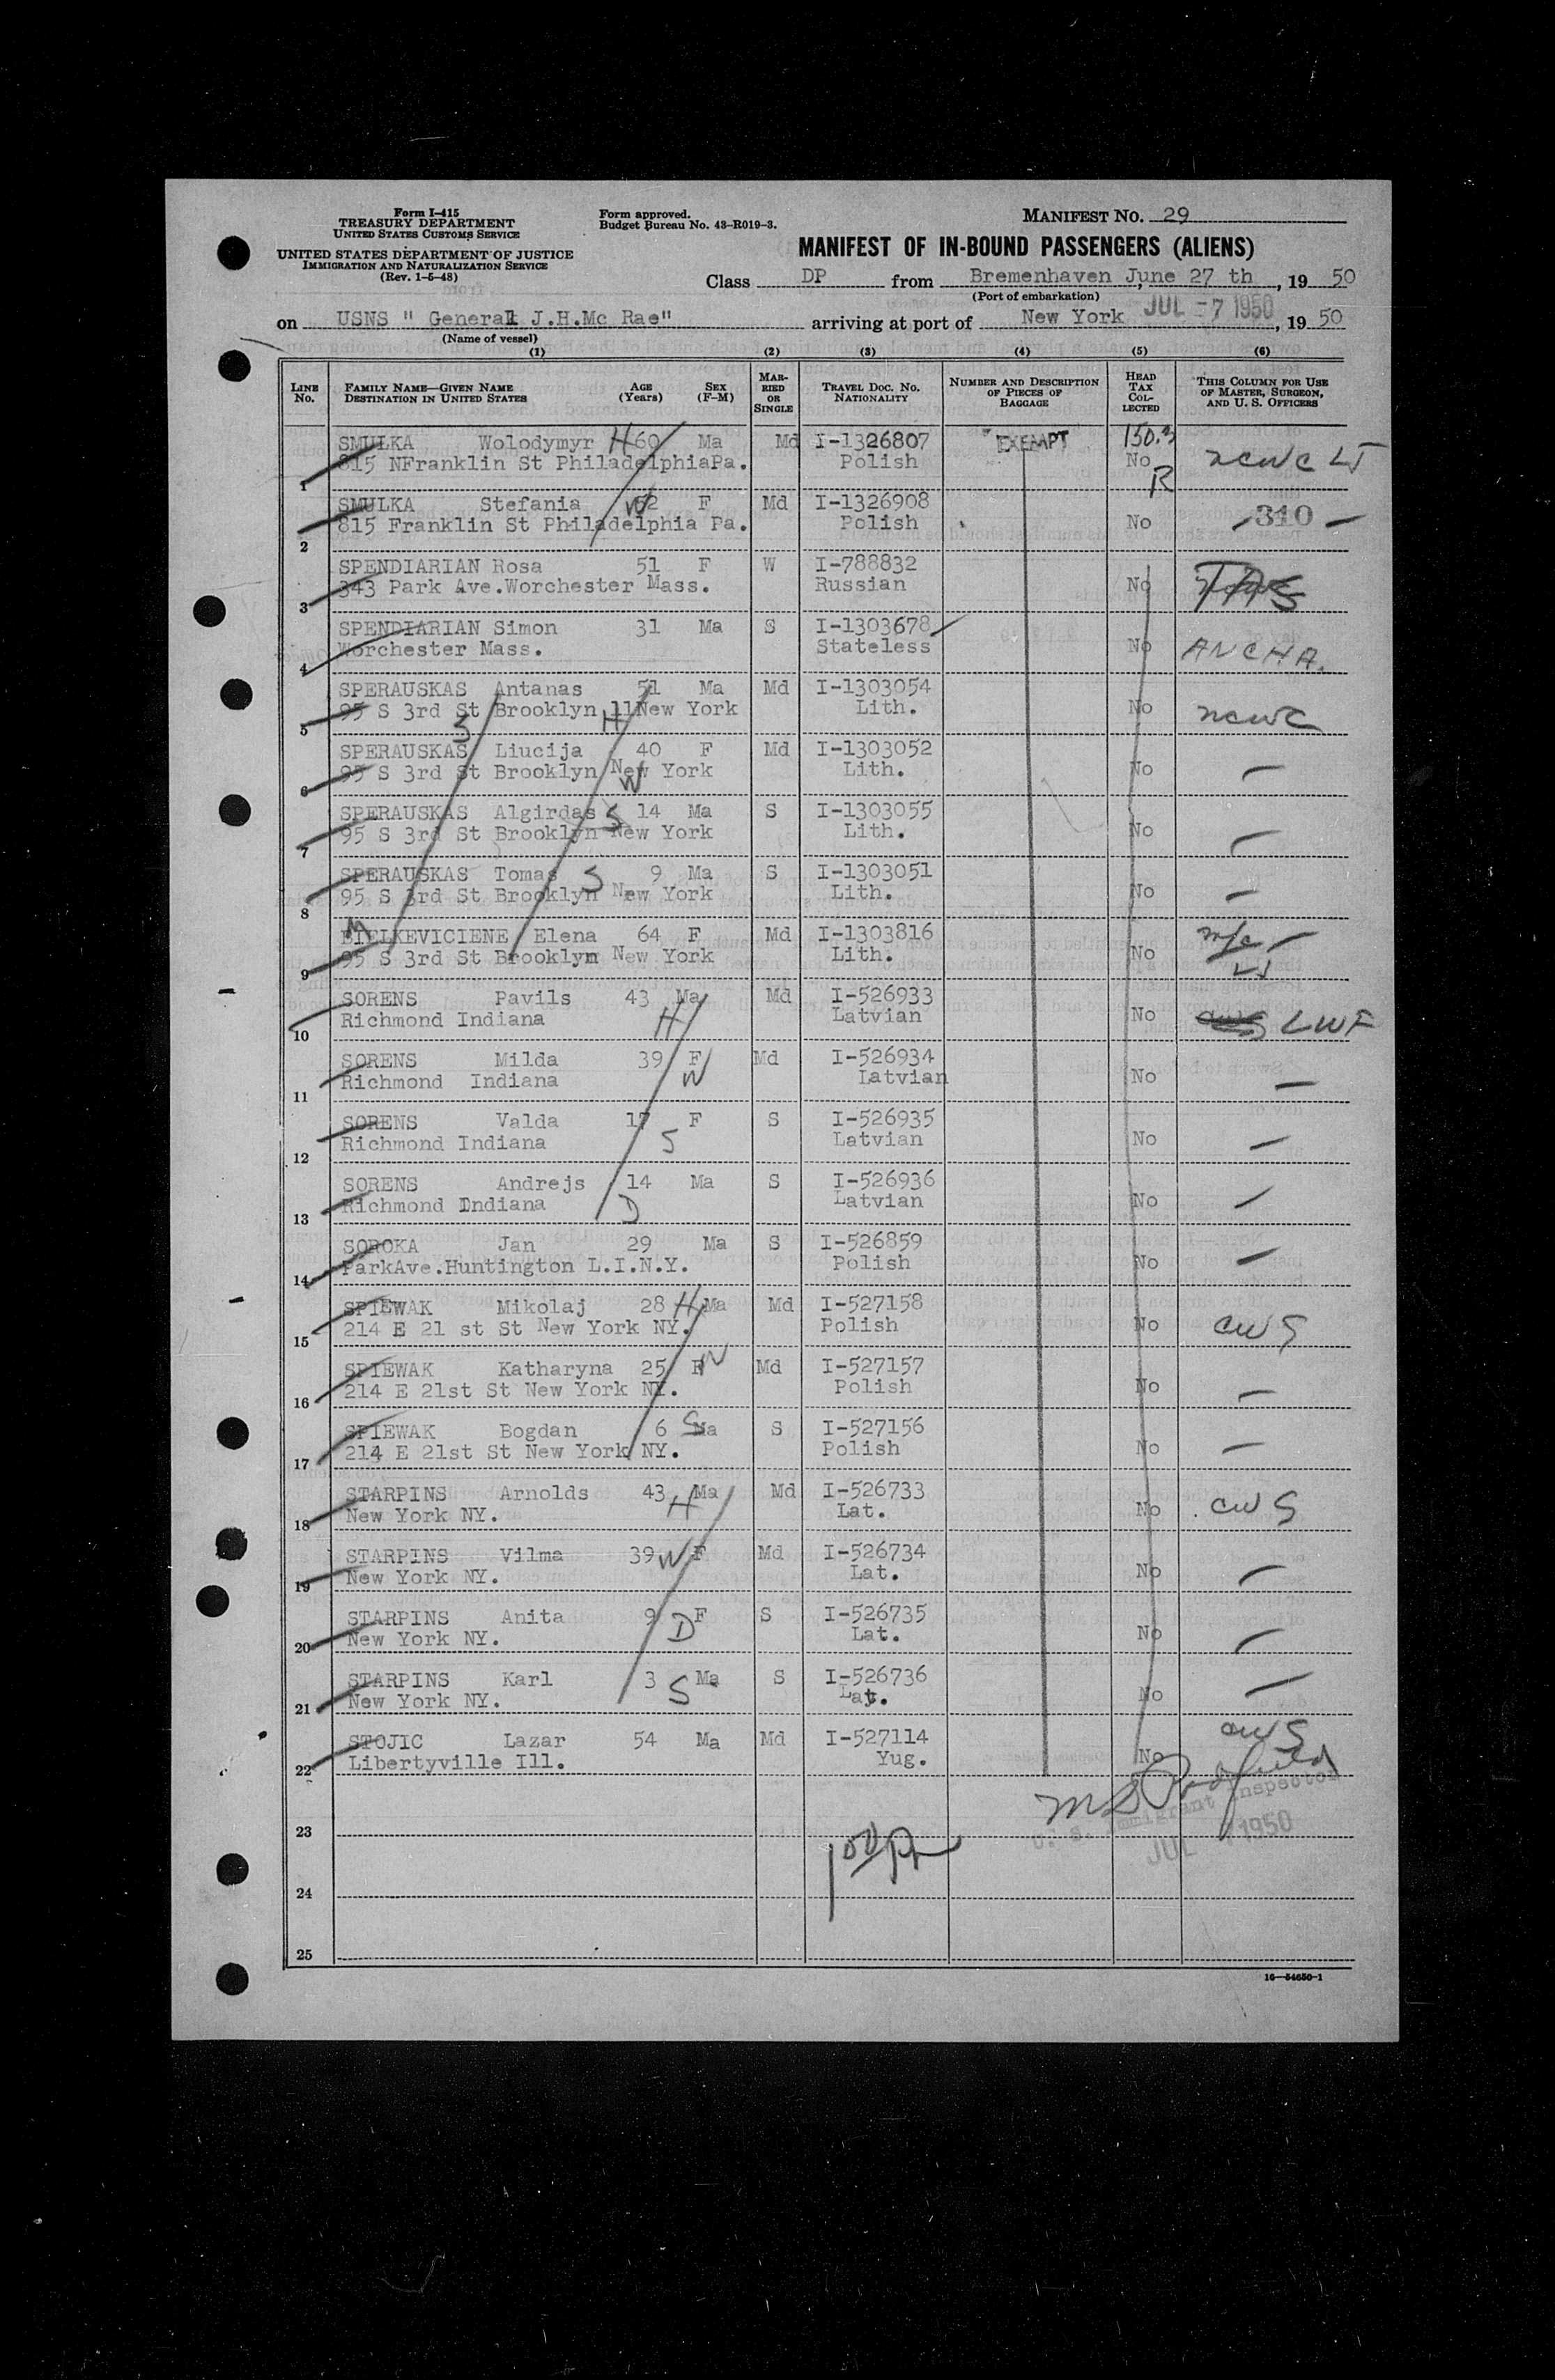 Form I-415
TREASURY DEPARTMENT
UNITED STATES CUSTOMS SERVICE
UNITED STATES DEPARTMENT OF JUSTICE
IMMIGRATION AND NATURALIZATION SERVICE
(Rev. 1-5-48)
Form approved.
Budget Bureau No. 43-R019-3.
MANIFEST NO. 29
MANIFEST OF IN-BOUND PASSENGERS (ALIENS)
Class DP from Bremenhaven June 27 th, 19 50
(Port of embarkation)
on USNS " General J.H.Mc Rae" arriving at port of New York JUL -7 1950, 19 50
(Name of vessel)
(1) (2) (3) (4) (5) (6)
LINE No. FAMILY NAME—GIVEN NAME DESTINATION IN UNITED STATES AGE (Years) SEX (F-M) MARRIED OR SINGLE TRAVEL DOC. NO. NATIONALITY NUMBER AND DESCRIPTION OF PIECES OF BAGGAGE HEAD TAX COLLECTED THIS COLUMN FOR USE OF MASTER, SURGEON, AND U. S. OFFICERS
SMULKA Wolodymyr H 60 Ma Md I-1326807 EXEMPT ncwc LJ
1 815 NFranklin St PhiladelphiaPa. Polish No R
SMULKA Stefania W 52 F Md I-1326908
2 815 Franklin St Philadelphia Pa. Polish No 310
SPENDIARIAN Rosa 51 F W I-788832
3 343 Park Ave.Worchester Mass. Russian No
SPENDIARIAN Simon 31 Ma S I-1303678
4 Worchester Mass. Stateless No ANCHA.
SPERAUSKAS Antanas 51 Ma Md I-1303054
5 95 S 3rd St Brooklyn 11New York H Lith. No ncwc
SPERAUSKAS Liucija 40 F Md I-1303052
6 95 S 3rd St Brooklyn New York W Lith. No
SPERAUSKAS Algirdas S 14 Ma S I-1303055
7 95 S 3rd St Brooklyn New York Lith. No
SPERAUSKAS Tomas S 9 Ma S I-1303051
8 95 S 3rd St Brooklyn New York Lith. No
BIELKEVICIENE Elena 64 F Md I-1303816
9 95 S 3rd St Brooklyn New York Lith. No LJ
SORENS Pavils 43 Ma Md I-526933
10 Richmond Indiana H Latvian No LWF
SORENS Milda 39 F Md I-526934
11 Richmond Indiana W Latvian No
SORENS Valda 17 F S I-526935
12 Richmond Indiana S Latvian No
SORENS Andrejs 14 Ma S I-526936
13 Richmond Indiana D Latvian No
SOROKA Jan 29 Ma S I-526859
14 ParkAve.Huntington L.I.N.Y. Polish No
SPIEWAK Mikolaj 28 H Ma Md I-527158
15 214 E 21 st St New York NY. Polish No CWS
SPIEWAK Katharyna 25 F W Md I-527157
16 214 E 21st St New York NY. Polish No
SPIEWAK Bogdan 6 S Ma S I-527156
17 214 E 21st St New York NY. Polish No
STARPINS Arnolds 43 H Ma Md I-526733
18 New York NY. Lat. No CWS
STARPINS Vilma 39 W F Md I-526734
19 New York NY. Lat. No
STARPINS Anita 9 D F S I-526735
20 New York NY. Lat. No
STARPINS Karl 3 S Ma S I-526736
21 New York NY. Lat. No
STOJIC Lazar 54 Ma Md I-527114 CWS
22 Libertyville Ill. Yug. No
U. S. Immigrant Inspector
23 JUL 7 1950
24
25
16—54650-1